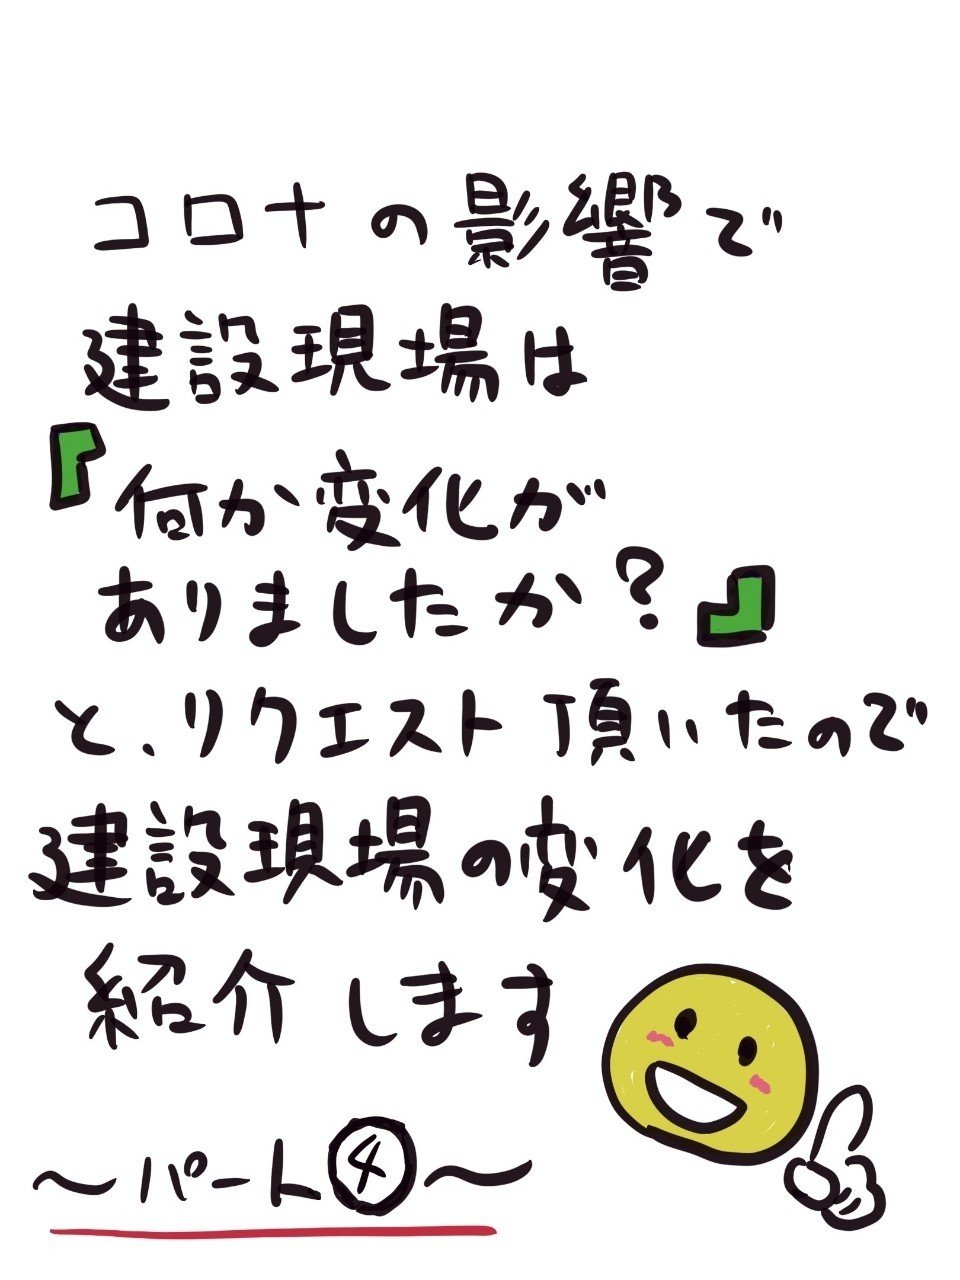 コロナの影響で
建設現場は
『何か変化が
ありましたか？』
と、リクエスト頂いたので
建設現場の変化を
紹介します
〜パート④〜